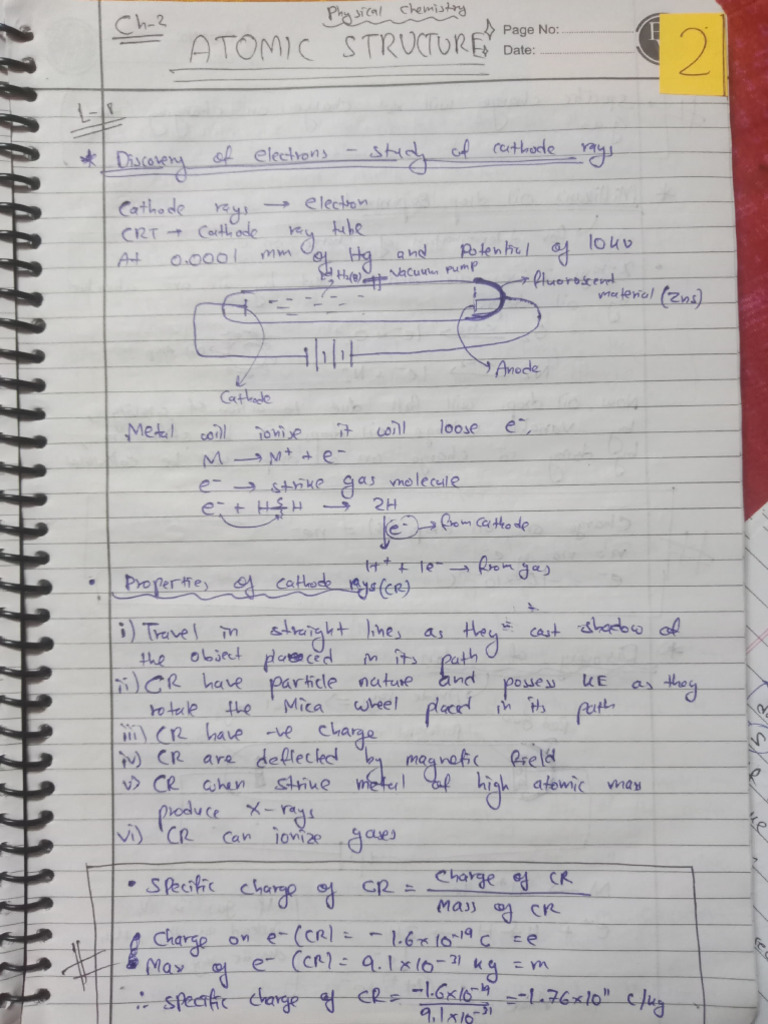 Ch-2
Physical Chemistry
ATOMIC STRUCTURE
Page No:
Date:
2
L-1
* Discovery of electrons - study of cathode rays
Cathode rays → electron
CRT → Cathode ray tube
At 0.0001 mm of Hg and Potential of 10kv
H₂(g) Vacuum pump
fluoroscent
material (Zns)
Anode
Cathode
Metal will ionise it will loose e-.
M → M+ + e-
e- → strike gas molecule
e- + H-H → 2H
e- → from cathode
H+ + 1e- → from gas
• Properties of cathode rays (CR)
i) Travel in straight lines as they cast shadow of
the object placed in its path
ii) CR have particle nature and possess KE as they
rotate the Mica wheel placed in its path
iii) CR have -ve charge
iv) CR are deflected by magnetic field
v) CR when strike metal of high atomic mass
produce X-rays
vi) CR can ionize gases
• Specific charge of CR = Charge of CR
Mass of CR
Charge on e- (CR) = -1.6×10⁻¹⁹ C = e
Mass of e- (CR) = 9.1×10⁻³¹ kg = m
∴ specific charge of CR = -1.6×10⁻¹⁹ = -1.76×10¹¹ C/kg
9.1×10⁻³¹